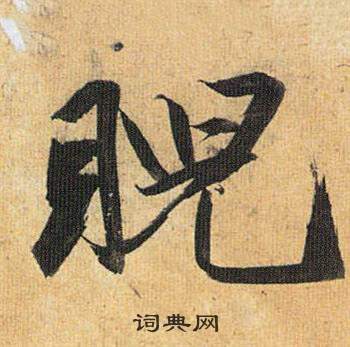 睨
词典网